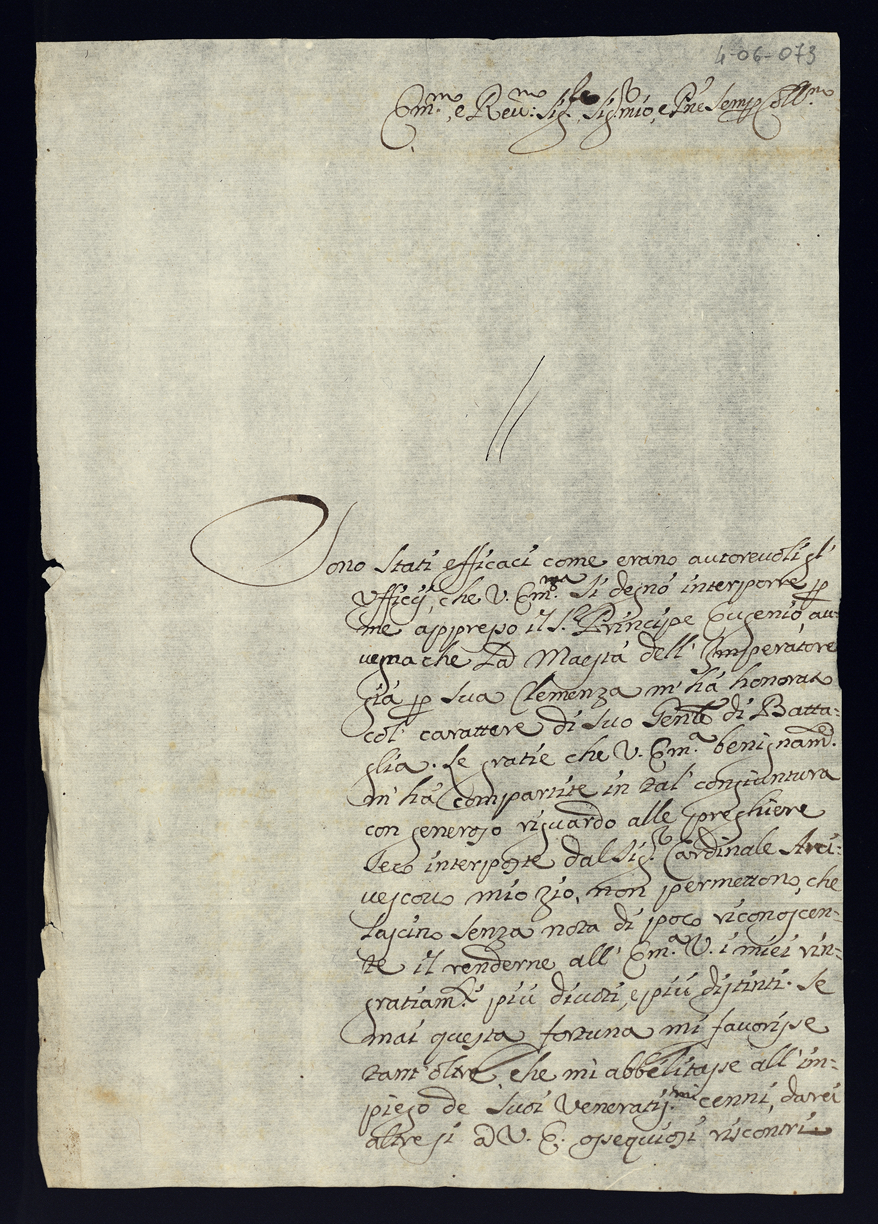 4-06-073
Em.mo, e Reu.mo: Sig.re Sig.r mio, e P'ne Semp Coll.mo
Sono stati efficaci come erano autoreuoli gl'
Vfficij, che V. Em.za si degnò interporre p
me appresso il S.r Principe Eugenio, au-
uegna che La Maestà dell' Imperatore
già p sua Clemenza m'hà honorato
col' carattere di suo Gen'le di Batta=
glia. Le gratie che V. Em.a benignam.te
m'hà compartite in tal' congiuntura
con generoso riguardo alle preghiere
seco interposte dal Sig.r Cardinale Arci=
uescouo mio zio, non permettono, che
lascino senza nota di poco riconoscen=
te il renderne all' Em.a V. i miei rin=
gratiam.ti più diuoti, e più distinti. Se
mai questa fortuna mi fauorisse
tant'oltre, che mi abbelitasse all' im=
piego de suoi Veneratiss.mi cenni, darei
altresi à V. E. ossequiosi riscontri